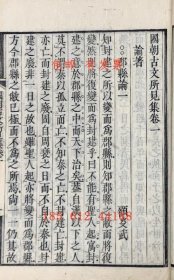 國朝古文所見集卷一
論著
郡縣論一 顧炎武
知封建之所以變而為郡縣則知郡縣之敝而將復
變然則將復變而為封建乎曰不能有聖人起寓封
建之意於郡縣之中而天下治矣蓋自漢以下之人
莫不謂秦以孤立而亡不知秦之亡不封建亡封建
亦亡而封建之廢固自周衰之日而不自於秦也封
建之廢非一日之故也雖聖人起亦將變而為郡縣
方今郡縣之敝已極而無聖人出焉尚一一仍其故